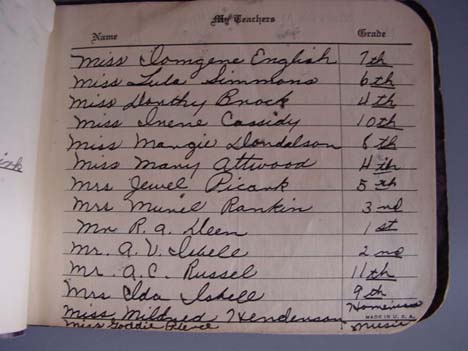 My Teachers
Name Grade
Miss Iomgene English 7th
Miss Lula Simmons 6th
Miss Dorthy Brock 4th
Miss Irene Cassidy 10th
Miss Margie Dondalson 8th
Miss Mary Attwood 4th
Mrs Jewel Picank 5th
Mrs Muriel Rankin 3rd
Mr R. A. Deen 1st
Mr. A. V. Isbell 2nd
Mr. A. C. Russel 11th
Mrs Ida Isbell 9th
Miss Mildred Henderson
MADE IN U. S. A.
Miss Goldie Pierce Music